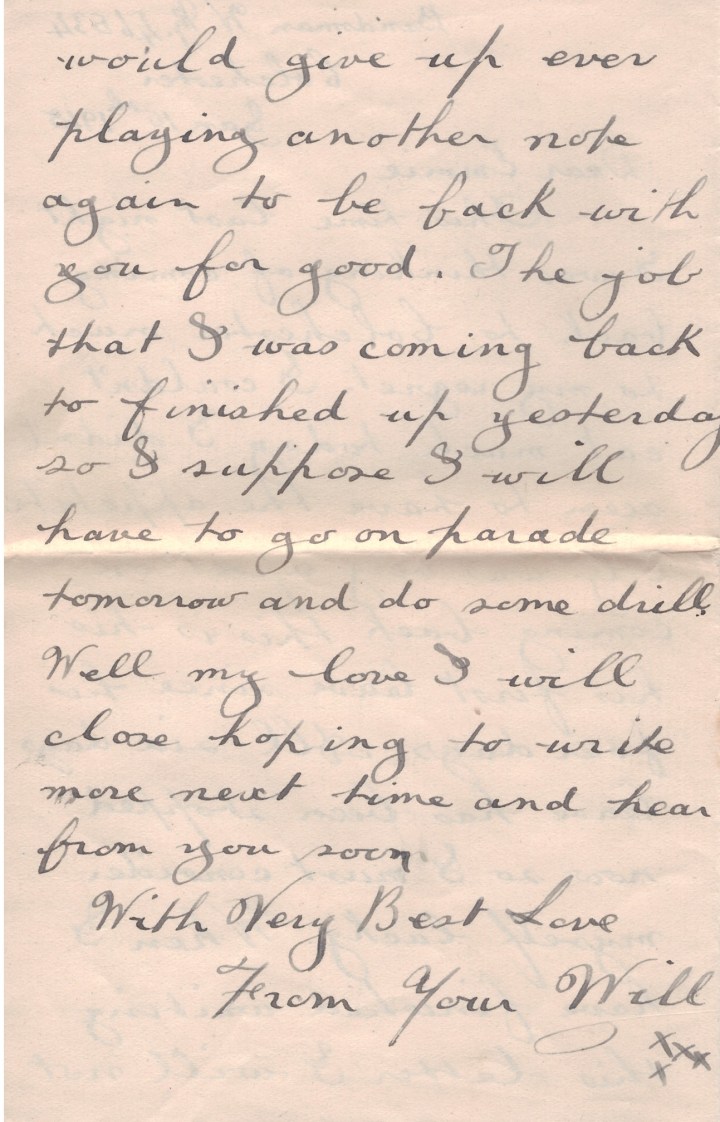 would give up ever
playing another note
again to be back with
you for good. The job
that I was coming back
to finished up yesterday
so I suppose I will
have to go on parade
tomorrow and do some drill.
Well my love I will
close hoping to write
more next time and hear
from you soon
With Very Best Love
From Your Will
xxx
x